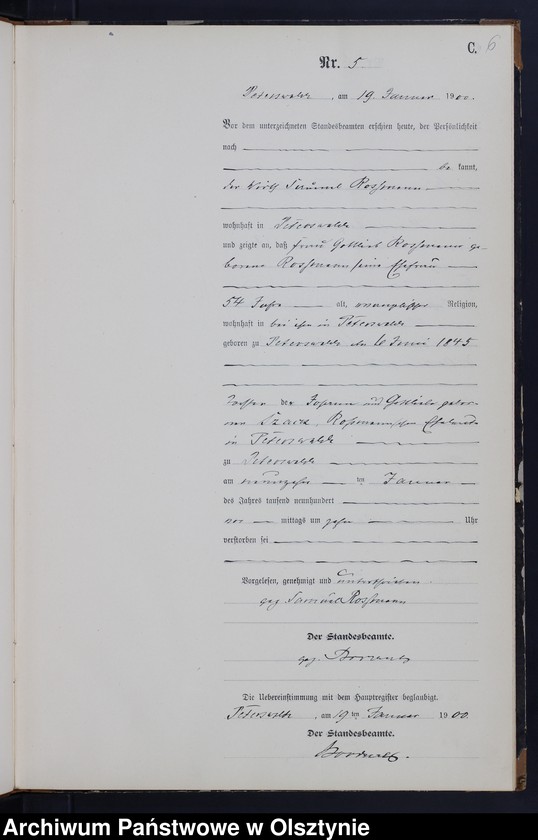 C. 6
Nr. 5
Peterswalde, am 19. Januar 1900.
Vor dem unterzeichneten Standesbeamten erschien heute, der Persönlichkeit
nach
be kannt,
der Wirth Samuel Rossmann
wohnhaft in Peterswalde
und zeigte an, daß Frau Gottlieb Rossmann ge-
borene Rossmann seine Ehefrau
54 Jahre alt, evangelischer Religion,
wohnhaft in bei ihm in Peterswalde
geboren zu Peterswalde den Juni 1845
Tochter der Johann und Gottliebe gebor-
nen Rossmannschen Eheleute
in Peterswalde
zu Peterswalde
am neunzehn ten Januar
des Jahres tausend neunhundert
vor mittags um zehn Uhr
verstorben sei
Vorgelesen, genehmigt und unterschrieben.
gez. Samuel Rossmann
Der Standesbeamte.
gez.
Die Uebereinstimmung mit dem Hauptregister beglaubigt.
Peterswalde, am 19 ten Januar 1900.
Der Standesbeamte.
Archiwum Państwowe w Olsztynie